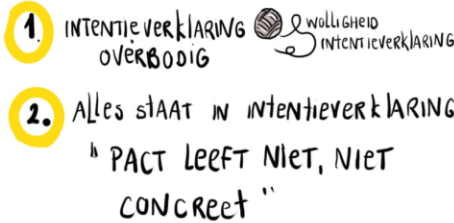 1. INTENTIE VERKLARING
OVERBODIG
WOLLIGHEID
INTENTIEVERKLARING
2. ALLES STAAT IN INTENTIEVERKLARING
" PACT LEEFT NIET, NIET
CONCREET "